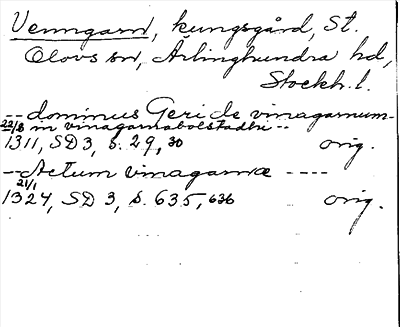 Venngarn, kungsgård, St.
Olovs sn, Ärlinghundra hd,
Stockh. l.
-- dominus Geri de vinagarnum-
22/8 in vinagarnabolstadhi --
1311, SD 3, s. 29, 30 orig.
-- Actum vinagarnæ ----
21/1
1324, SD 3, s. 635, 636 orig.